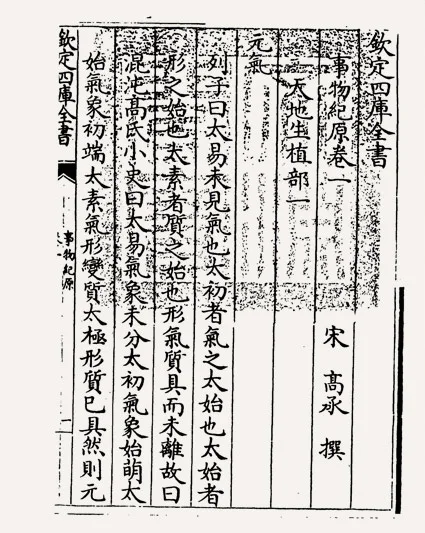 欽定四庫全書
事物紀原卷一
宋 高承 撰
天地生植部一
元氣
列子曰太易未見氣也太初者氣之太始也太始者
形之始也太素者質之始也形氣質具而未離故曰
混沌高氏小史曰太易氣象未分太初氣象始萌太
始氣象初端太素氣形變質太極形質已具然則元
欽定四庫全書
事物紀原
卷一
一